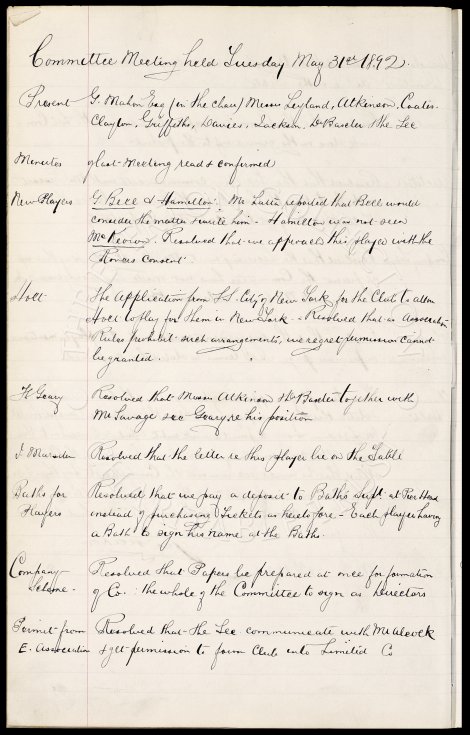 Committee Meeting held Tuesday May 31st 1892.
Present G. Mahon Esq (in the chair) Messrs Leyland, Atkinson, Coates
Clayton, Griffiths, Davies, Jackson, Dr Baxter & the Sec
Minutes of last Meeting read & confirmed
New Players G Bell & Hamilton. Mr Latta reported that Bell would
consider the matter & write him - Hamilton was not seen
McKeown. Resolved that we approach this player with the
Rovers consent.
Holt The Application from SS. City of New York for the Club to allow
Holt to play for them in New York - Resolved that as Association
Rules prohibit such arrangements, we regret permission cannot
be granted.
H Geary Resolved that Messrs Atkinson & Dr Baxter together with
Mr Savage see Geary re his position
J. Marsden Resolved that the letter re this player lie on the Table
Baths for Resolved that we pay a deposit to Baths Supt at Pier Head
Players instead of purchasing Tickets as heretofore - Each player having
a Bath to sign his name at the Baths.
Company Resolved that Papers be prepared at once for formation
Scheme. of Co. the whole of the Committee to sign as Directors
Permit from Resolved that the Sec communicate with Mr Alcock
E. Association & get permission to form Club into Limited Co